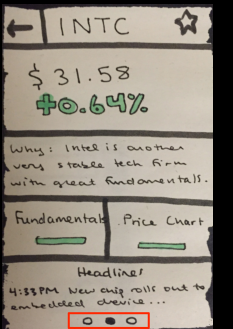 INTC
$31.58
+0.64%
Why: Intel is another
very stable tech firm
with great fundamentals.
Fundamentals Price Chart
Headlines
4:33PM New chip rolls out to
embedded device...